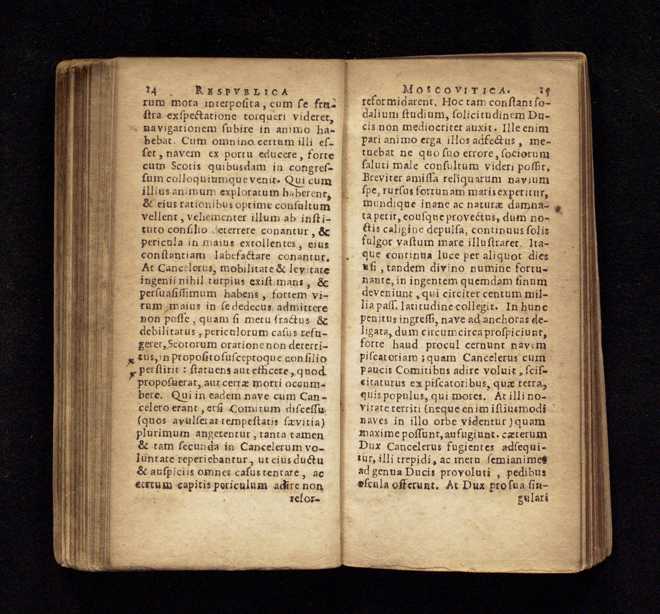 24 RESPVBLICA
rum mora interposita, cum se fru-
stra exspectatione torqueri videret,
navigationem subire in animo ha-
bebat. Cum omnino certum illi es-
set, navem ex portu educere, forte
cum Scotis quibusdam in congres-
sum colloquiumque venit. Qui cum
illius animum exploratum haberent,
& eius rationibus optime consultum
vellent, vehementer illum ab insti-
tuto consilio deterrere conantur, &
pericula in maius extollentes, eius
constantiam labefactare conantur.
At Cancelerus, mobilitate & levitate
ingenii nihil turpius existimans, &
persuasissimum habens, fortem vi-
rum maius in se dedecus admittere
non posse, quam si metu fractus &
debilitatus, periculorum casus refu-
geret, Scotorum oratione non deterri-
tus, in proposito susceptoque consilio
perstitit: statuens aut efficere, quod
proposuerat, aut certæ morti occum-
bere. Qui in eadem nave cum Can-
celero erant, etsi Comitum discessu
(quos avulserat tempestatis sævitia)
plurimum angerentur, tanta tamen
& tam secunda in Cancelerum vo-
luntate reperiebantur, ut eius ductu
& auspiciis omnes casus tentare, ac
certum capitis periculum adire non
refor-
MOSCOVITICA. 25
reformidarent. Hoc tam constans so-
dalium studium, solicitudinem Du-
cis non mediocriter auxit. Ille enim
pari animo erga illos adfectus, me-
tuebat ne quo suo errore, sociorum
saluti male consultum videri possit.
Breviter amissa reliquarum navium
spe, rursos fortunam maris experitur,
mundique inane ac naturæ damna-
ta petit, eousque provectus, dum no-
ctis caligine depulsa, continuus solis
fulgor vastum mare illustraret. Ita-
que continua luce per aliquot dies
usi, tandem divino numine fortu-
nante, in ingentem quemdam sinum
deveniunt, qui circiter centum mil-
lia pass. latitudine collegit. In hunc
penitus ingressi, nave ad anchoras de-
ligata, dum circumcirca prospiciunt,
forte haud procul cernunt navem
piscatoriam; quam Cancelerus cum
paucis Comitibus adire voluit, scis-
citaturus ex piscatoribus, quæ terra,
quis populus, qui mores. At illi no-
vitate territi (neque enim istiusmodi
naves in illo orbe videntur) quam
maxime possunt, aufugiunt. cæterum
Dux Cancelerus fugientes adsequi-
tur, illi trepidi, ac metu semianimes
ad genua Ducis provoluti, pedibus
oscula offerunt. At Dux pro sua sin-
gulari